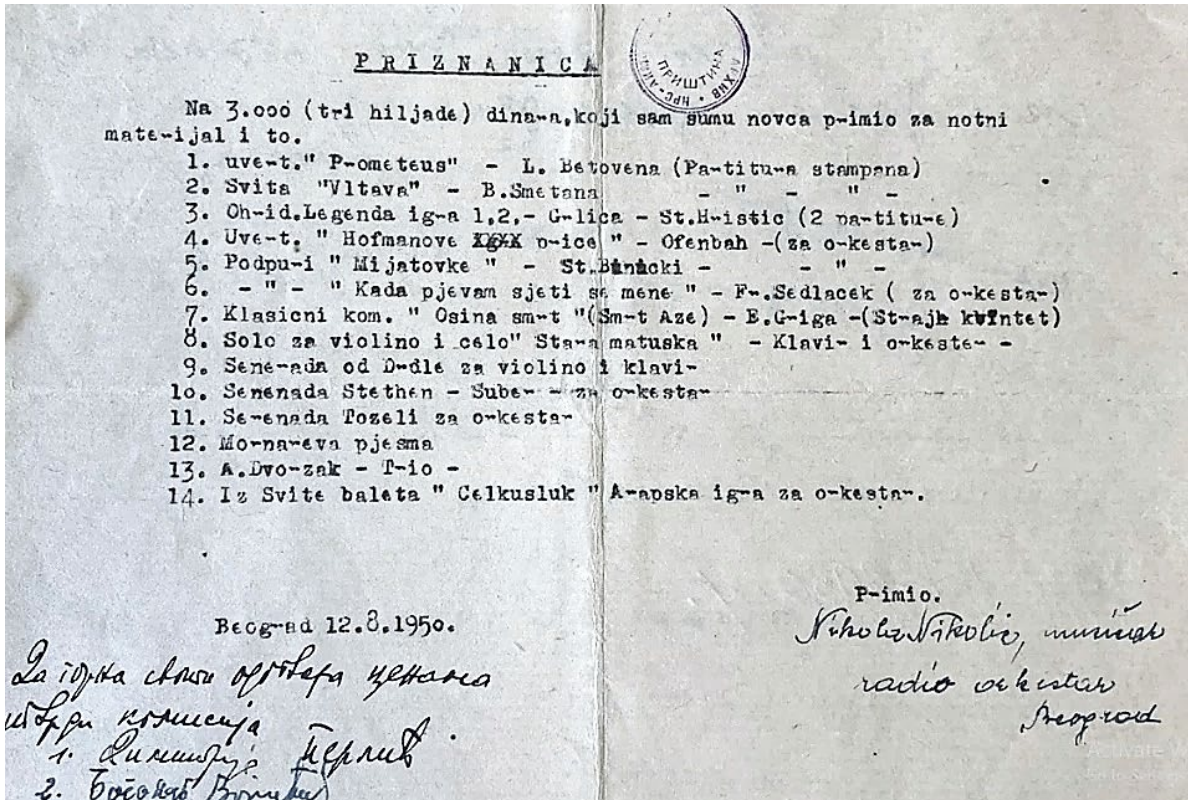 PRIZNANICA
АРХИВ НРС-АКМО ПРИШТИНА
Na 3.000 (tri hiljade) dina~a,koji sam sumu novca p~imio za notni
mate~ijal i to.
1. uve~t." P~ometeus" - L. Betovena (Pa~titu~a stampana)
2. Svita "Vltava" - B.Smetana - " - " -
3. Oh~id.Legenda ig~a 1,2,- G~lica - St.H~istic (2 pa~titu~e)
4. Uve~t. " Hofmanove p~ice " - Ofenbah -(za o~kesta~)
5. Podpu~i " Mijatovke " - St.Binicki - - " -
6. - " - " Kada pjevam sjeti se mene " - F~.Sedlacek ( za o~kesta~)
7. Klasicni kom. " Osina sm~t "(Sm~t Aze) - E.G~iga -(St~ajh kvintet)
8. Solo za violino i celo" Sta~a matuska " - Klavi~ i o~keste~ -
9. Sene~ada od D~dle za violino i klavi~
10. Senenada Stethen - Sube~ - za o~kesta~
11. Se~enada Tozeli za o~kesta~
12. Mo~na~eva pjesma
13. A.Dvo~zak - T~io -
14. Iz Svite baleta " Celkusluk " A~apska ig~a za o~kesta~.
P~imio.
Beog~ad 12.8.1950.
Nikola Nikolić, muzičar
radio orkestar
Beograd
Да горња свота одговара ценама
утврди комисија
1. Димитрије
2.